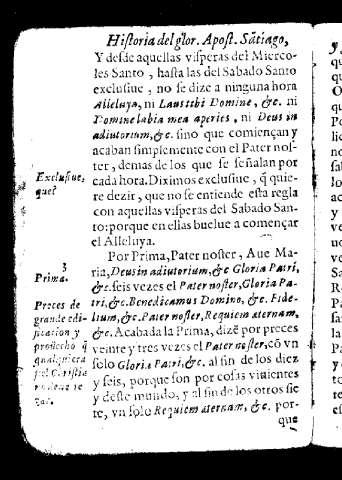 Historia del glor. Apost. Sãtiago,
Y desde aquellas visperas del Mierco-
les Santo, hasta las del Sabado Santo
exclusiue, no se dize a ninguna hora
Alleluya, ni Laus tibi Domine, &c. ni
Domine labia mea aperies, ni Deus in
adiutorium, &c. sino que comiençan y
acaban simplemente con el Pater nos-
ter, demas de los que se señalan por
cada hora. Diximos exclusiue, q̃ quie-
re dezir, que no se entiende esta regla
con aquellas visperas del Sabado San-
to: porque en ellas buelue a começar
el Alleluya.
Por Prima, Pater noster, Aue Ma-
ria, Deus in adiutorium, &c Gloria Patri,
&c. seis vezes el Pater noster, Gloria Pa-
tri, &c. Benedicamus Domino, &c. Fide-
lium, &c. Pater noster, Requiem æternam,
&c. Acabada la Prima, dizẽ por preces
veinte y tres vezes el Pater noster, cõ vn
solo Gloria Patri, &c. al fin de los diez
y seis, porque son por cosas viuientes
y deste mundo, y al fin de los otros sie
te, vn solo Requiem æternam, &c. por-
que
Exclusiue,
que?
3
Prima.
Preces de
grande edi-
ficacion y
prouecho q̃
qualquiera